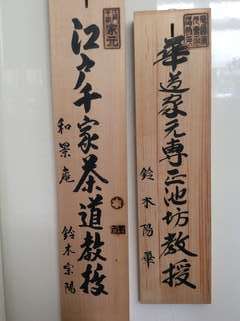 華道家元専正池坊教授
鈴木陽華
家元
江戸千家茶道教授
和景庵
鈴木宗陽